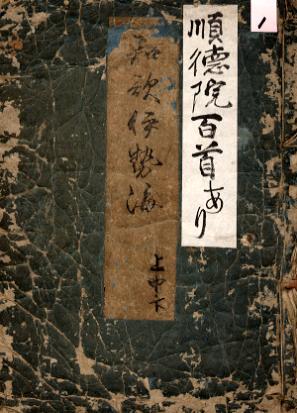 順徳院百首あり
和歌伊勢海
上中下